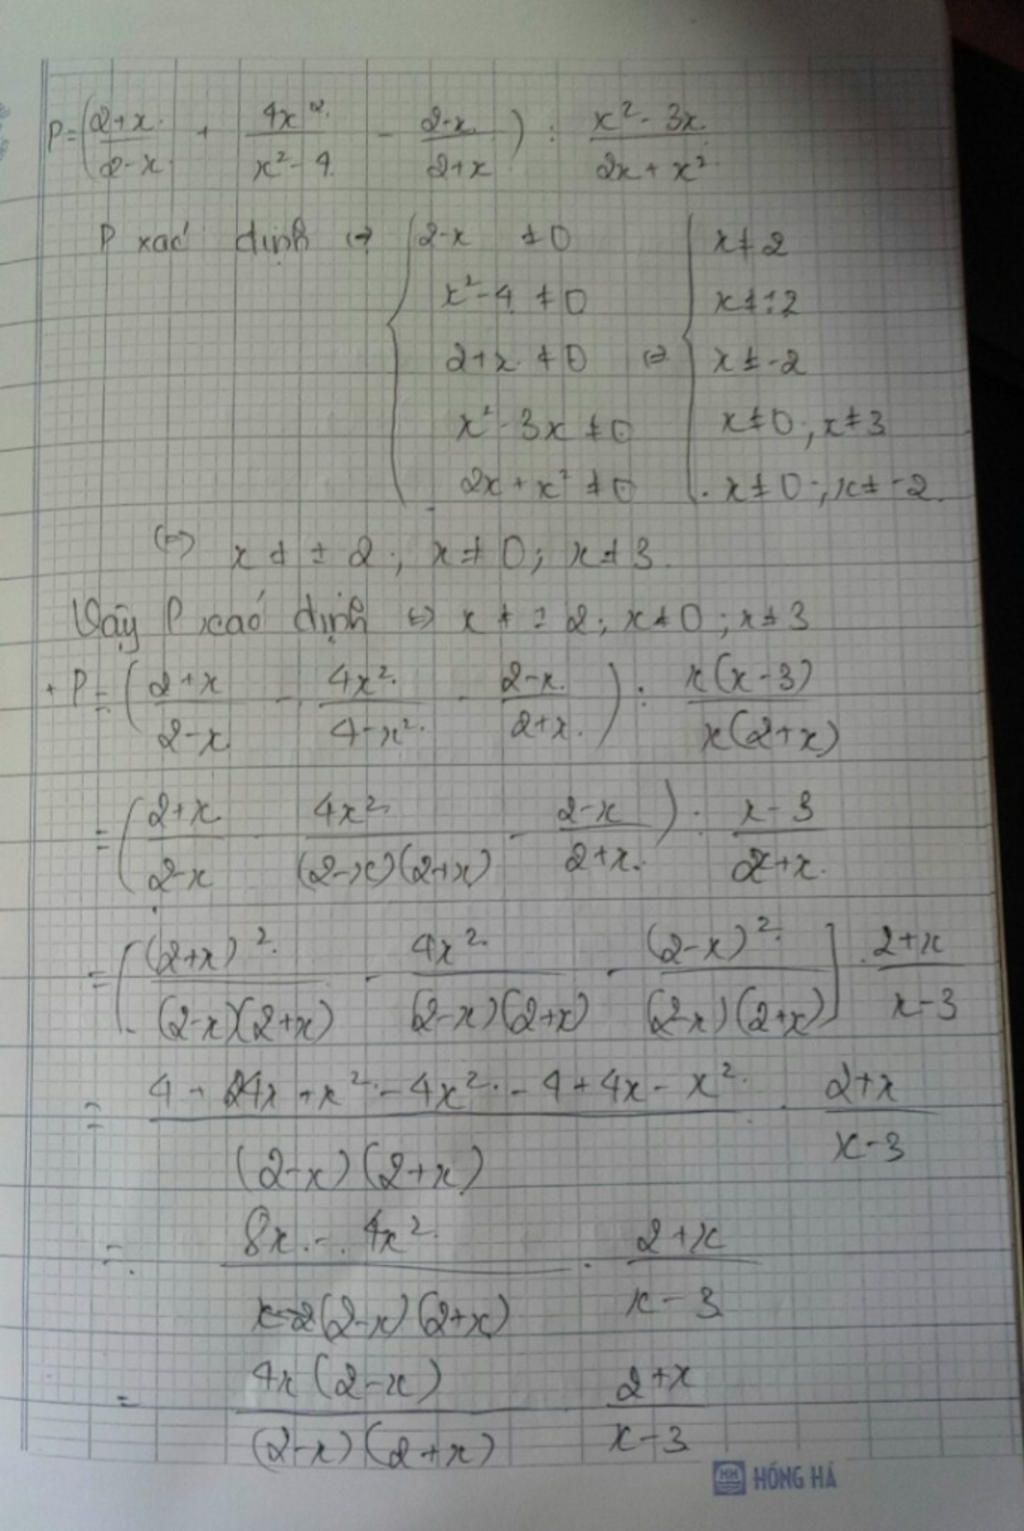 P = ( (2+x)/(2-x) + 4x²/(x²-4) - (2-x)/(2+x) ) : (x²-3x)/(2x+x²)
P xác định ⇔ { 2-x ≠ 0 { x ≠ 2
x²-4 ≠ 0 x ≠ ±2
2+x ≠ 0 ⇔ x ≠ -2
x²-3x ≠ 0 x ≠ 0 ; x ≠ 3
2x+x² ≠ 0 x ≠ 0 ; x ≠ -2
⇔ x ≠ ±2 ; x ≠ 0 ; x ≠ 3
Vậy P xác định ⇔ x ≠ ±2 ; x ≠ 0 ; x ≠ 3
+ P = ( (2+x)/(2-x) - 4x²/(4-x²) - (2-x)/(2+x) ) : x(x-3)/x(2+x)
= ( (2+x)/(2-x) - 4x²/(2-x)(2+x) - (2-x)/(2+x) ) : (x-3)/(2+x)
= [ (2+x)²/(2-x)(2+x) - 4x²/(2-x)(2+x) - (2-x)²/(2-x)(2+x) ] . (2+x)/(x-3)
= (4 + 4x + x² - 4x² - 4 + 4x - x²)/(2-x)(2+x) . (2+x)/(x-3)
= (8x - 4x²)/(2-x)(2+x) . (2+x)/(x-3)
= 4x(2-x)/(2-x)(2+x) (2+x)/(x-3)
HH HỒNG HÀ